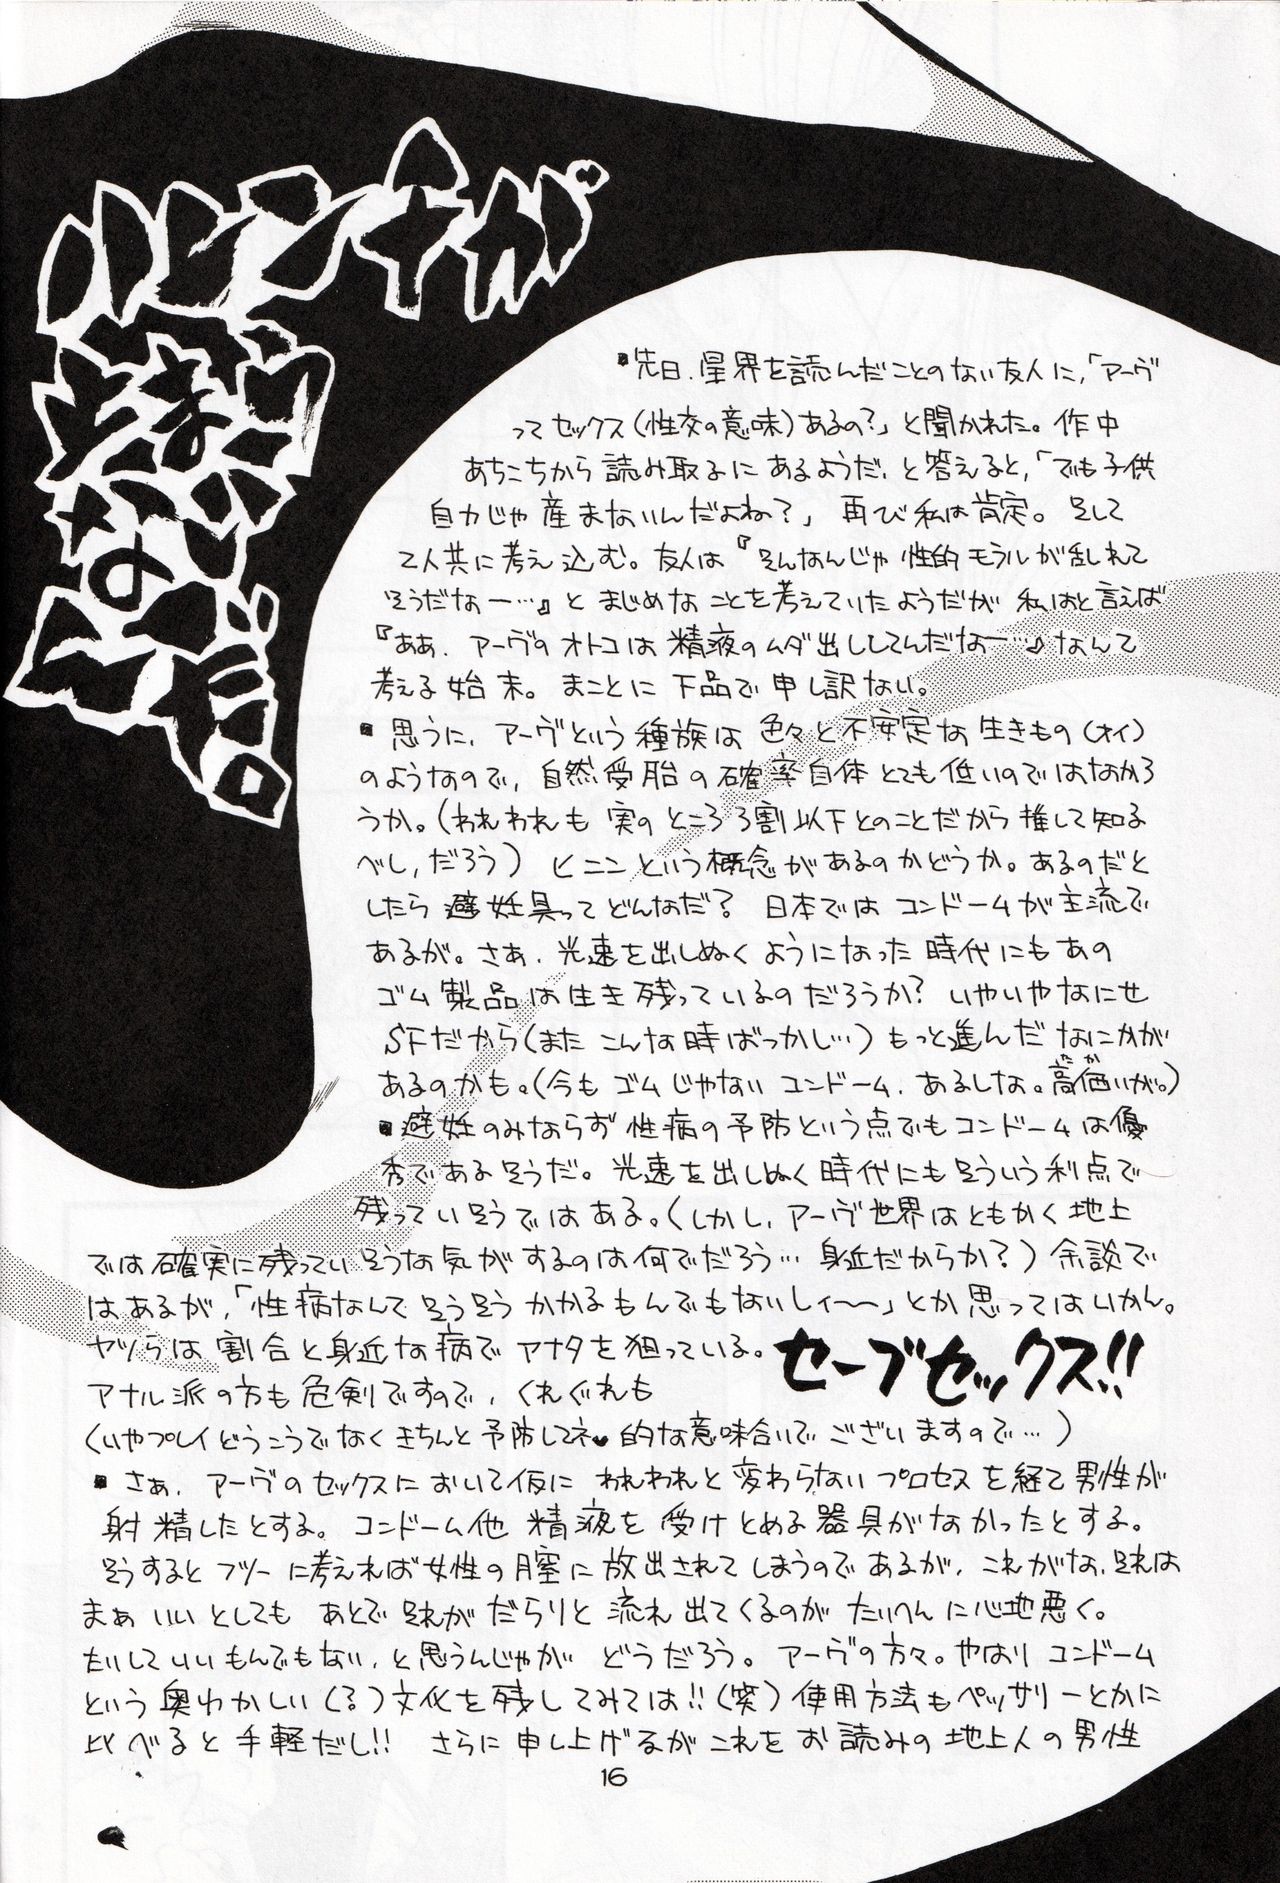 ■先日、星界を読んだことのない友人に、「アーヴ
ってセックス(性交の意味)あるの?」と聞かれた。作中
あちこちから読み取るにあるようだ、と答えると、「でも子供
自力じゃ産まないんだよね?」再び私は肯定。そして
2人共に考え込む。友人は『そんなんじゃ性的モラルが乱れて
そうだなー…』とまじめなことを考えていたようだが私はと言えば
『ああ、アーヴのオトコは精液のムダ出ししてんだなー…』なんて
考える始末。まことに下品で申し訳ない。
■思うに、アーヴという種族は色々と不安定な生きもの(オイ)
のようなので、自然受胎の確率自体とても低いのではなかろ
うか。(われわれも実のところ3割以下とのことだから推して知る
べし、だろう)ヒニンという概念があるのかどうか。あるのだと
したら避妊具ってどんなだ?日本ではコンドームが主流で
あるが。さぁ、光速を出しぬくようになった時代にもあの
ゴム製品は生き残っているのだろうか?いやいやなにせ
SFだから(またこんな時ばっかし…)もっと進んだなにかが
あるのかも。(今もゴムじゃないコンドーム、あるしな。高価いが。)
たか
■避妊のみならず性病の予防という点でもコンドームは優
秀であるそうだ。光速を出しぬく時代にもそういう利点で
残っていそうではある。(しかし、アーヴ世界はともかく地上
では確実に残っていそうな気がするのは何でだろう…身近だからか?)余談で
はあるが、「性病なんてそうそうかかるもんでもないしィ〜〜」とか思ってはいかん。
ヤツらは割合と身近な病でアナタを狙っている。
セーブセックス!!
アナル派の方も危剣ですので、くれぐれも
(いやプレイどうこうでなくきちんと予防してネ♥的な意味合いでございますので…)
■さぁ、アーヴのセックスにおいて仮にわれわれと変わらないプロセスを経て男性が
射精したとする。コンドーム他精液を受けとめる器具がなかったとする。
そうするとフツーに考えれば女性の膣に放出されてしまうのであるが、これがな、それは
まぁいいとしてもあとでそれがだらりと流れ出てくるのがたいへんに心地悪く。
たいしていいもんでもない、と思うんじゃがどうだろう。アーヴの方々。やはりコンドーム
という奥ゆかしい(?)文化を残してみては!!(笑)使用方法もペッサリーとかに
比べると手軽だし!!さらに申し上げるがこれをお読みの地上人の男性
16